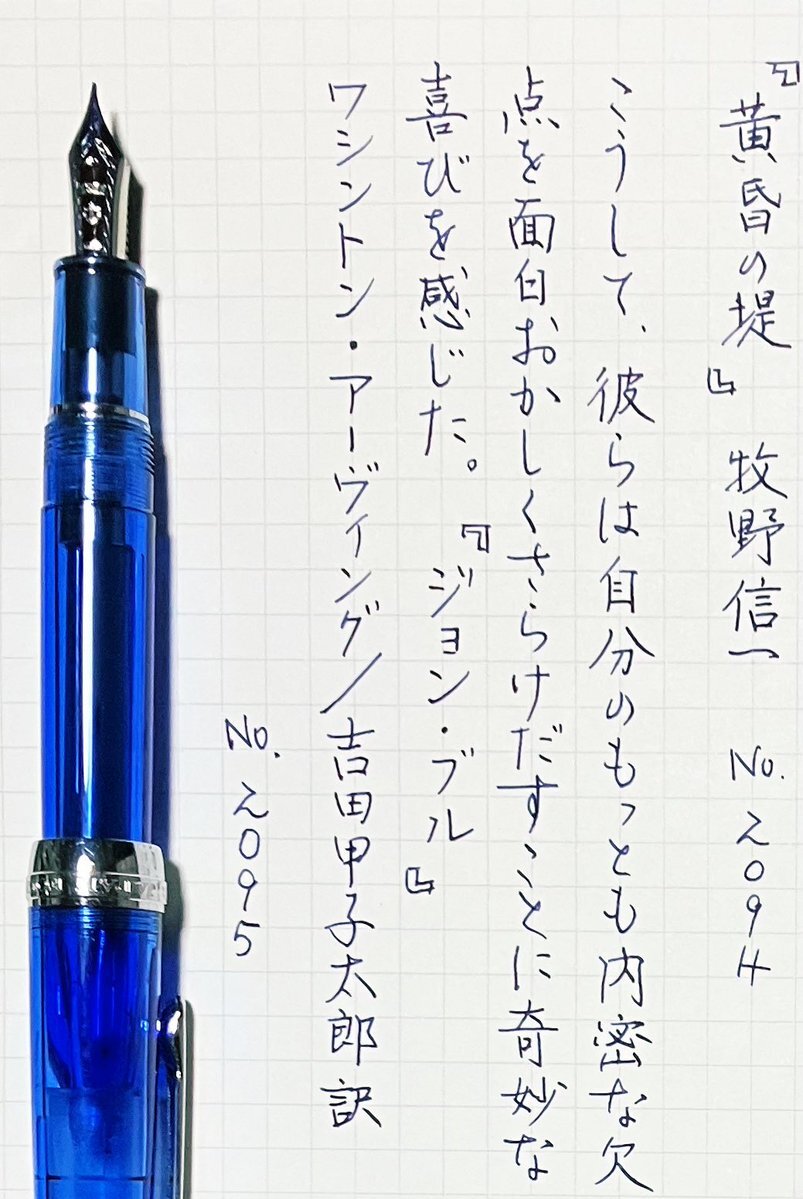 『黄昏の堤』 牧野信一 No.2094
こうして、彼らは自分のもっとも内密な欠
点を面白おかしくさらけだすことに奇妙な
喜びを感じた。『ジョン・ブル』
ワシントン・アーヴィング/吉田甲子太郎訳
No.2095